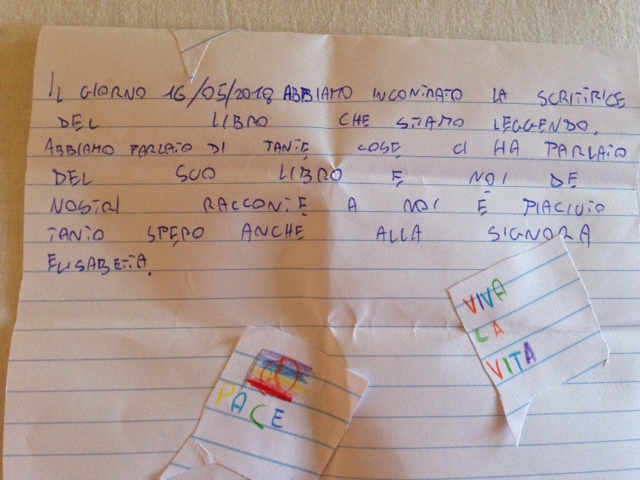 IL GIORNO 16/05/2018 ABBIAMO INCONTRATO LA SCRITTRICE
DEL LIBRO CHE STIAMO LEGGENDO.
ABBIAMO PARLATO DI TANTE COSE CI HA PARLATO
DEL SUO LIBRO E NOI DE
NOSTRI RACCONTI E A NOI È PIACIUTO
TANTO SPERO ANCHE ALLA SIGNORA
ELISABETTA.
VIVA
LA
VITA
PACE